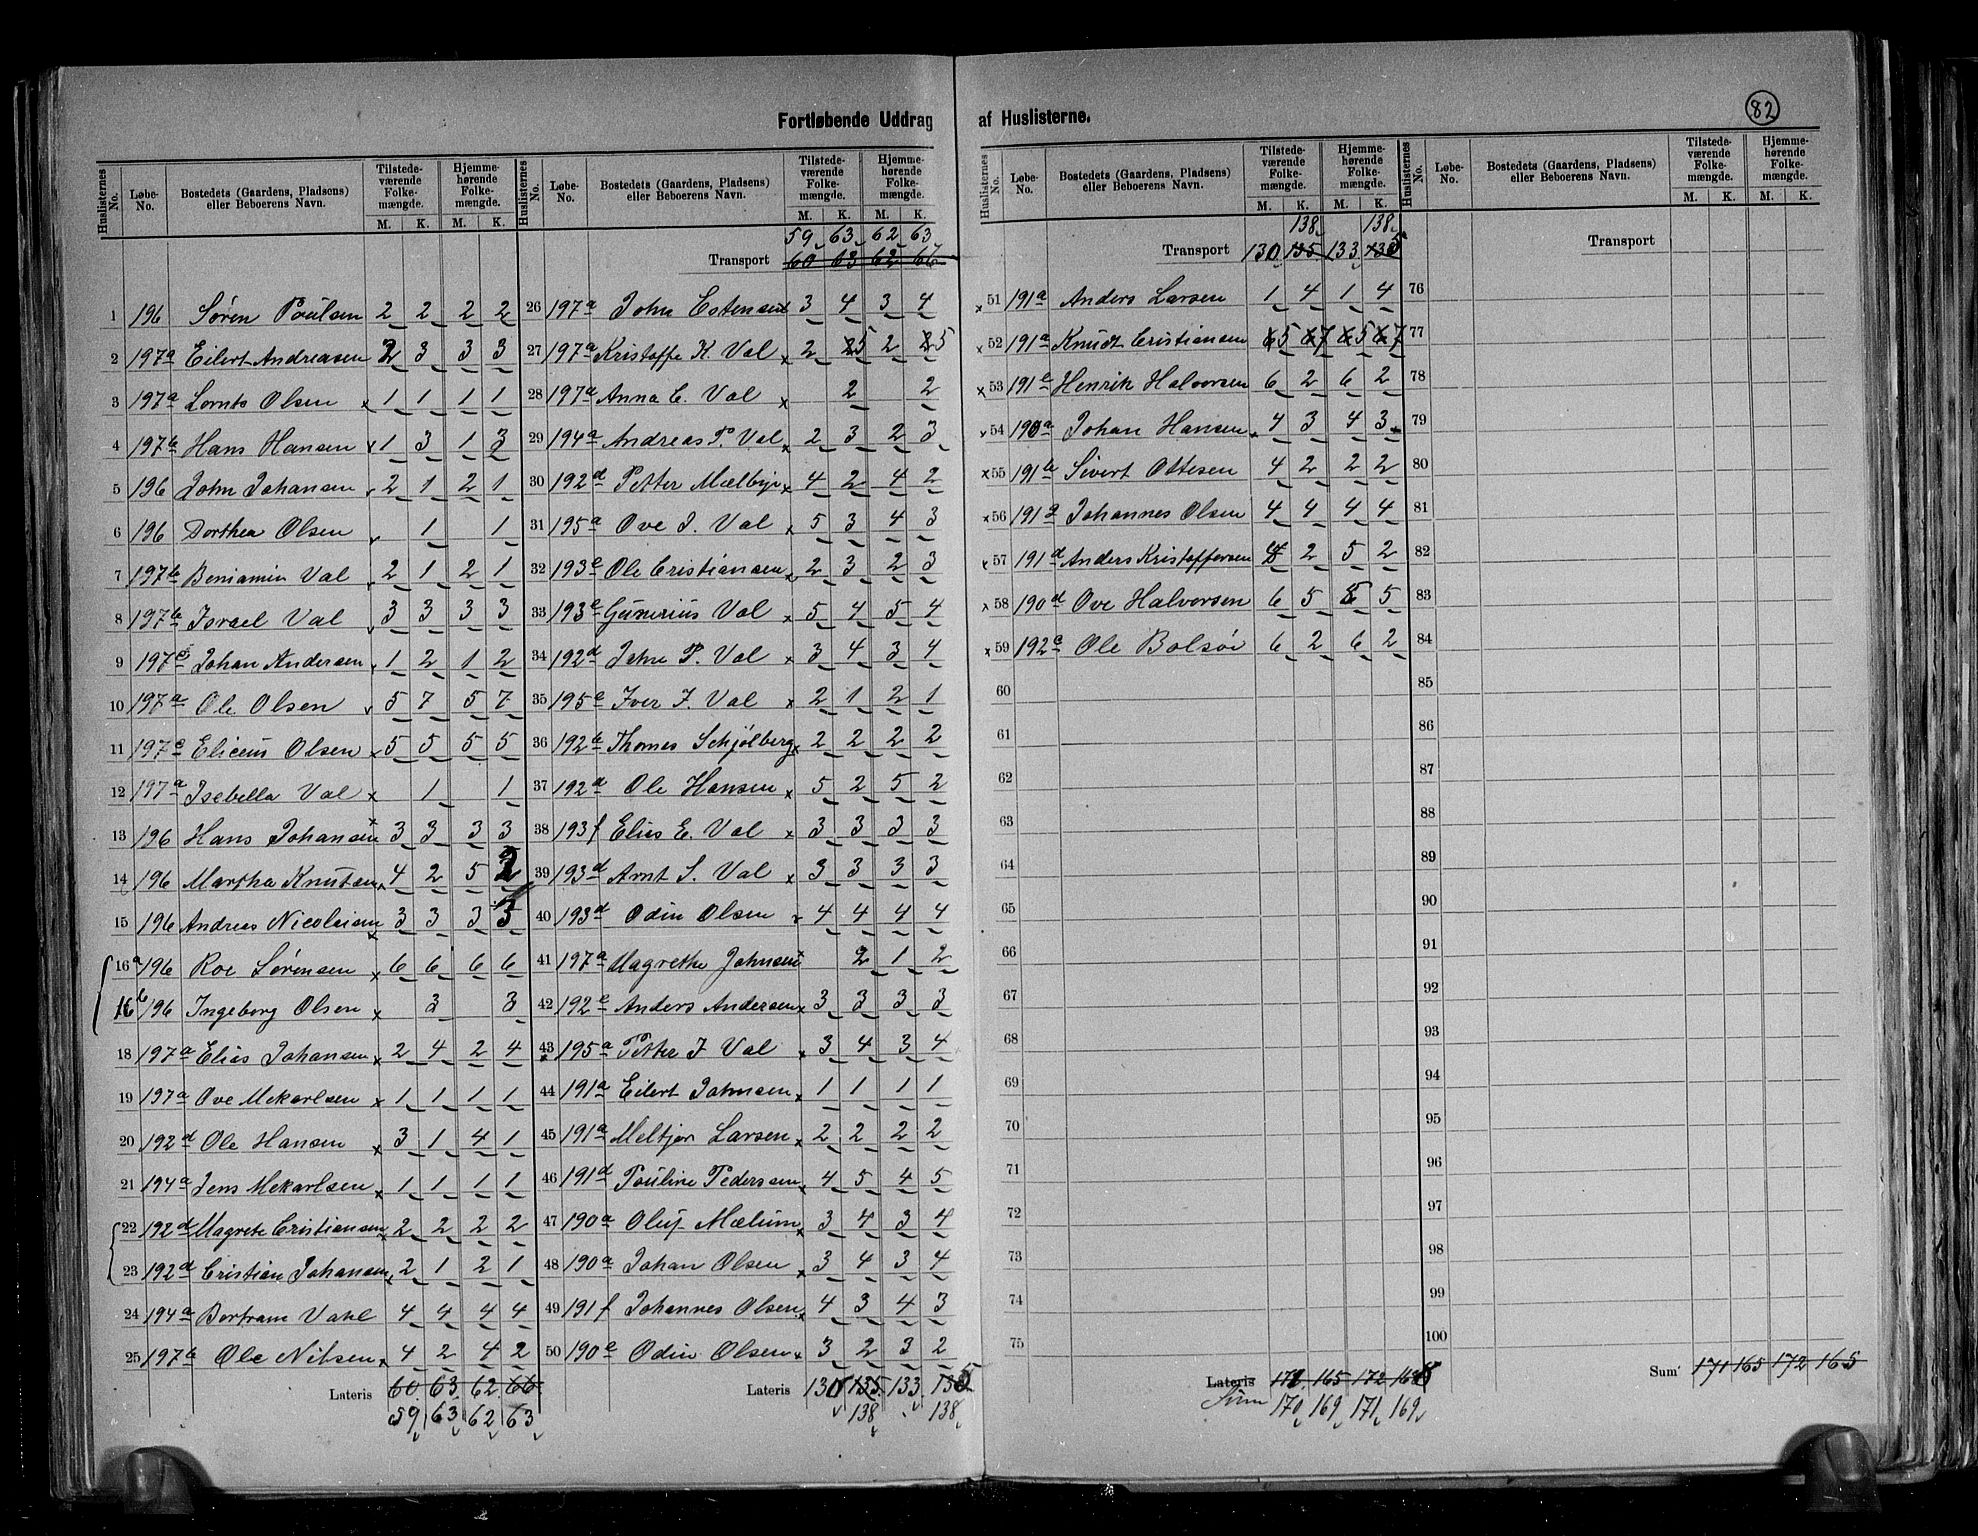 82
Fortløbende Uddrag af Huslisterne.
Huslisternes No. Løbe-No. Bostedets (Gaardens, Pladsens) eller Beboerens Navn. Tilstedeværende Folkemængde. M. K. Hjemmehørende Folkemængde. M. K.
1 196 Søren Poulsen 2 2 2 2
2 197a Eilert Andreasen 2 3 3 3
3 197a Lornts Olsen x 1 1 1 1
4 197b Hans Hansen x 1 3 1 3
5 196 John Johansen 2 1 2 1
6 196 Dorthea Olsen 1 1
7 197b Beniamin Val 2 1 2 1
8 197b Israel Val 3 3 3 3
9 197 Johan Andersen 1 2 1 2
10 197a Ole Olsen 5 7 5 7
11 197e Eliceus Olsen x 5 5 5 5
12 197a Isebella Val x 1 1
13 196 Hans Johansen x 3 3 3 3
14 196 Martha Knutsen 4 2 5 2
15 196 Andreas Nicolaisen x 3 3 3 3
16a 196 Roe Sørensen x 6 6 6 6
16b 196 Ingeborg Olsen x 3 3
18 197a Elias Johansen x 2 4 2 4
19 197a Ove Mekarlsen x 1 1 1 1
20 192d Ole Hansen x 3 1 4 1
21 194a Jens Mekarlsen x 1 1 1 1
22 192d Magrete Cristiansen x 2 2 2 2
23 192d Cristian Johansen x 2 1 2 1
24 194a Bertram Vahl 4 4 4 4
25 197b Ole Nilsen x 4 2 4 2
Lateris 60 63 62 66
59 63 62 63
Huslisternes No. Løbe-No. Bostedets (Gaardens, Pladsens) eller Beboerens Navn. Tilstedeværende Folkemængde. M. K. Hjemmehørende Folkemængde. M. K.
59 63 62 63
Transport 60 63 62 66
26 197a John Estensen x 3 4 3 4
27 197a Kristoffe K. Val x 2 5 2 5
28 197a Anna E. Val x 2 2
29 194a Andreas P. Val x 2 3 2 3
30 192d Petter Mælbye x 4 2 4 2
31 195a Ove J. Val x 5 3 4 3
32 193e Ole Cristiansen x 2 3 2 3
33 193e Gunerius Val x 5 4 5 4
34 192d Jens P. Val x 3 4 3 4
35 195e Iver J. Val x 2 1 2 1
36 192b Thomes Schjølberg x 2 2 2 2
37 192d Ole Hansen x 5 2 5 2
38 193f Elias E. Val x 3 3 3 3
39 193d Arnt S. Val x 3 3 3 3
40 193d Odin Olsen x 4 4 4 4
41 197a Magrethe Johnsen x 2 1 2
42 192e Anders Andersen x 3 3 3 3
43 195a Petter J Val x 3 4 3 4
44 191a Eilert Johnsen x 1 1 1 1
45 191a Meltjor Larsen x 2 2 2 2
46 191d Pouline Pedersen x 4 5 4 5
47 190a Oluf Mælum x 3 4 3 4
48 190a Johan Olsen x 3 4 3 4
49 191f Johannes Olsen x 4 3 4 3
50 190e Odin Olsen x 3 2 3 2
Lateris 130 135 133 135
138 138
Huslisternes No. Løbe-No. Bostedets (Gaardens, Pladsens) eller Beboerens Navn. Tilstedeværende Folkemængde. M. K. Hjemmehørende Folkemængde. M. K.
138 138
Transport 130 135 133 135
x 51 191a Anders Larsen 1 4 1 4
x 52 191a Knudt Cristiansen 5 7 5 7
x 53 191e Henrik Halvorsen 6 2 6 2
x 54 190a Johan Hansen 4 3 4 3
x 55 191b Sivert Ottesen 4 2 2 2
x 56 191 Johannes Olsen 4 4 4 4
x 57 191d Anders Kristoffersen 2 5 2
x 58 190d Ove Halvorsen 6 5 5
x 59 192a Ole Bolsøi 6 2 6 2
60
61
62
63
64
65
66
67
68
69
70
71
72
73
74
75
Lateris 171 165 172 165
Sum 170 169 171 169
Huslisternes No. Løbe-No. Bostedets (Gaardens, Pladsens) eller Beboerens Navn. Tilstedeværende Folkemængde. M. K. Hjemmehørende Folkemængde. M. K.
Transport
76
77
78
79
80
81
82
83
84
85
86
87
88
89
90
91
92
93
94
95
96
97
98
99
100
Sum 171 165 172 165